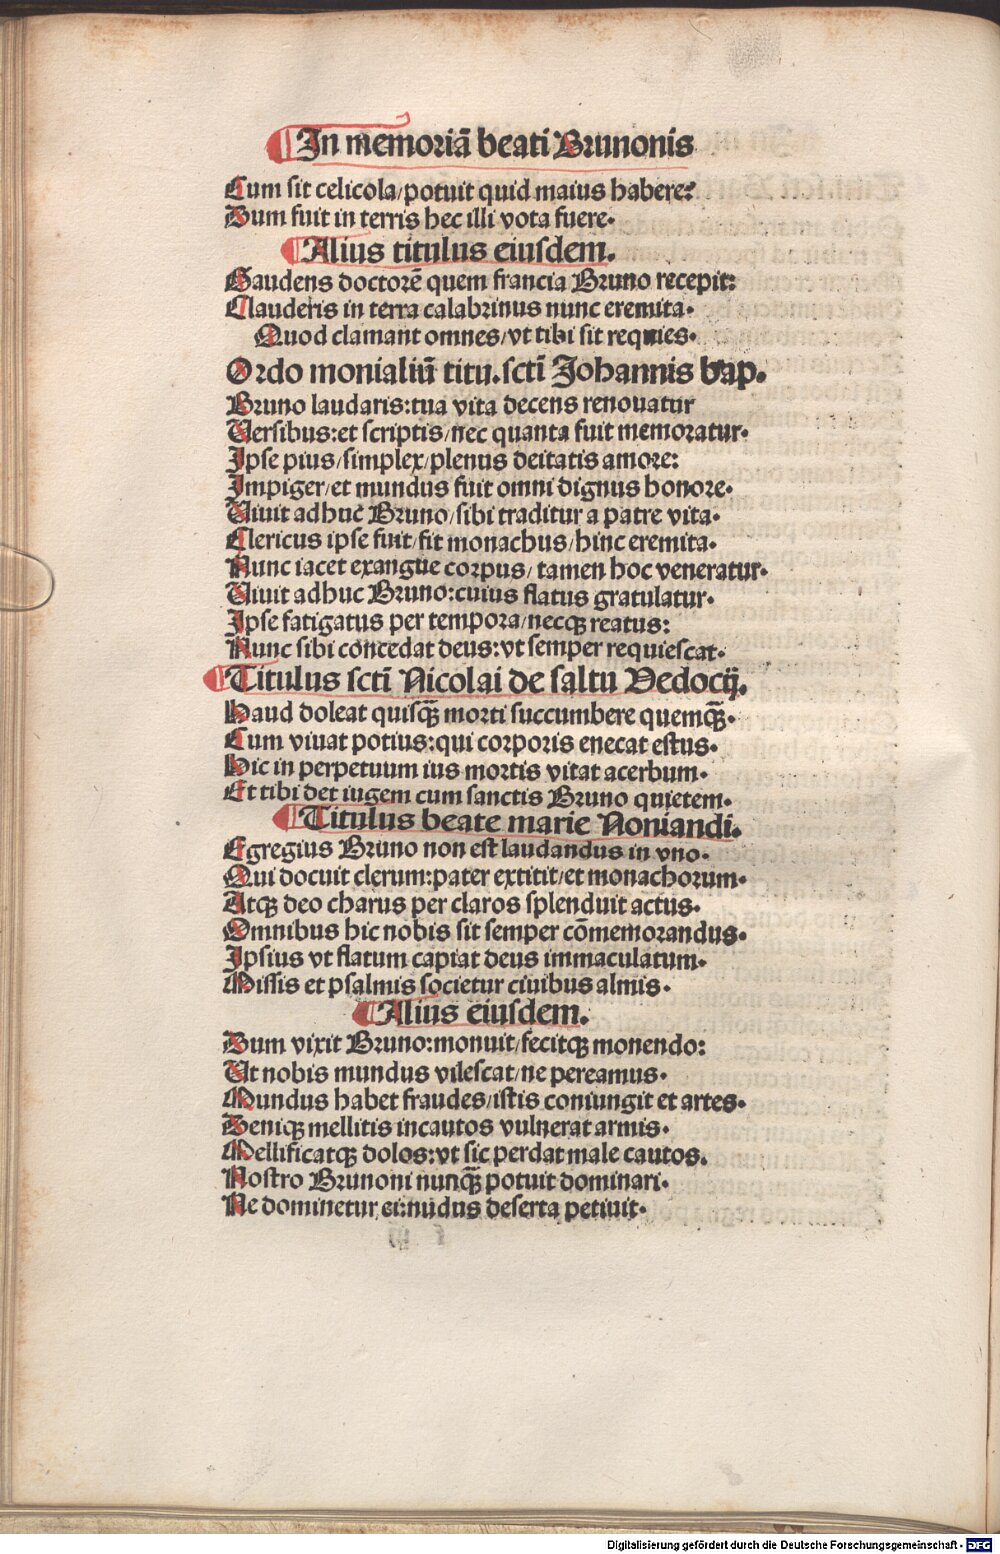 In memoriā beati Brunonis
Cum sit celicola/potuit quid maius habere?
Dum fuit in terris hec illi vota fuere.
Alius titulus eiusdem.
Gaudens doctorē quem francia Bruno recepit:
Clauderis in terra calabrinus nunc eremita.
Quod clamant omnes/vt tibi sit requies.
Ordo monialiū titu.sctī Johannis bap.
Bruno laudaris:tua vita decens renouatur
Versibus:et scriptis/nec quanta fuit memoratur.
Ipse pius/simplex/plenus deitatis amore:
Impiger/et mundus fuit omni dignus honore.
Viuit adhuc Bruno/sibi traditur a patre vita.
Clericus ipse fuit/fit monachus/hinc eremita.
Nunc iacet exangue corpus/tamen hoc veneratur.
Viuit adhuc Bruno:cuius flatus gratulatur.
Ipse fatigatus per tempora/necqʒ reatus:
Nunc sibi cōcedat deus:vt semper requiescat.
Titulus sctī Nicolai de saltu Dedocij.
Haud doleat quisq̄ʒ morti succumbere quemq̄ʒ.
Cum viuat potius:qui corporis enecat estus.
Hic in perpetuum ius mortis vitat acerbum.
Et tibi det iugem cum sanctis Bruno quietem.
Titulus beate marie Noniandi.
Egregius Bruno non est laudandus in vno.
Qui docuit clerum:pater extitit/et monachorum.
Atqʒ deo charus per claros splenduit actus.
Omnibus hic nobis sit semper cōmemorandus.
Ipsius vt flatum capiat deus immaculatum.
Missis et psalmis societur ciuibus almis.
Alius eiusdem.
Dum vixit Bruno:monuit/fecitqʒ monendo:
Ut nobis mundus vilescat/ne pereamus.
Mundus habet fraudes/istis coniungit et artes.
Deniqʒ mellitis incautos vulnerat armis.
Mellificatqʒ dolos:vt sic perdat male cautos.
Nostro Brunoni nunq̄ʒ potuit dominari.
Ne dominetur ei:nudus deserta petiuit.
Digitalisierung gefördert durch die Deutsche Forschungsgemeinschaft - DFG